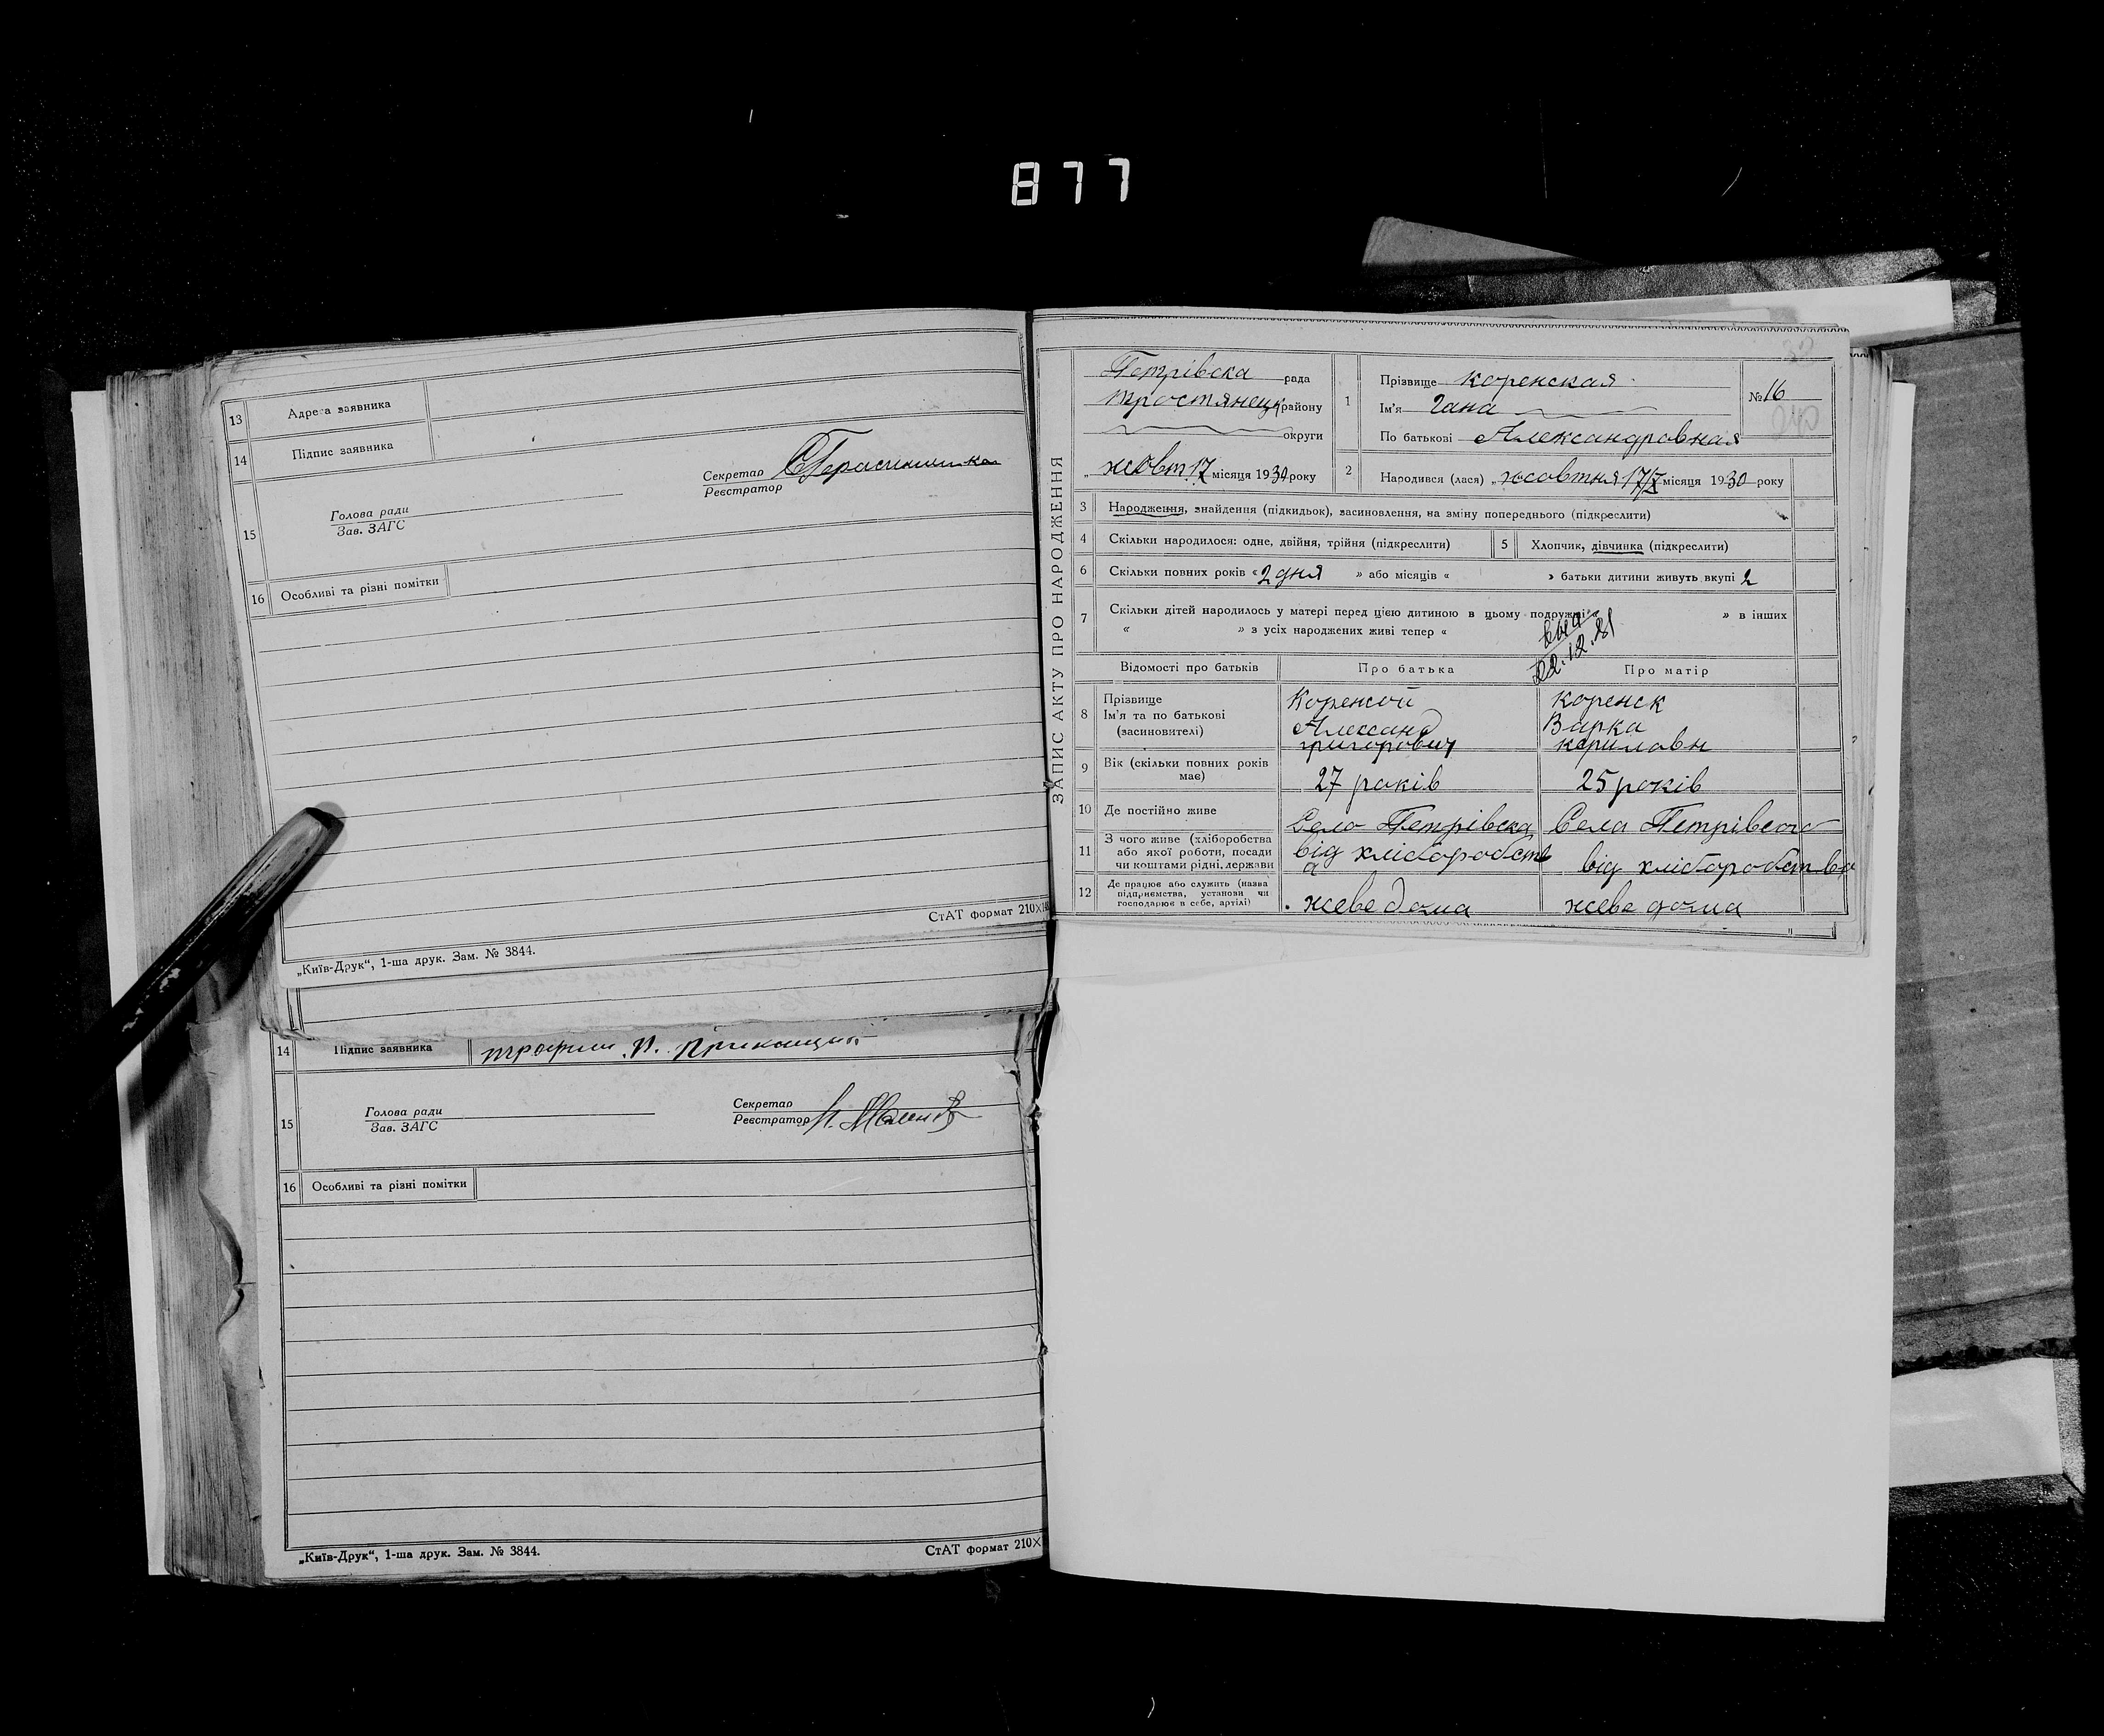 877
13 Адреса заявника
14 Підпис заявника
15 Голова ради
Зав. ЗАГС
Секретар
Реєстратор
16 Особливі та різні помітки
СтАТ формат 210×
„Київ-Друк“, 1-ша друк. Зам. № 3844.
14 Підпис заявника трофим П.
15 Голова ради
Зав. ЗАГС
Секретар
Реєстратор
16 Особливі та різні помітки
„Київ-Друк“, 1-ша друк. Зам. № 3844.
СтАТ формат 210×
ЗАПИС АКТУ ПРО НАРОДЖЕННЯ
Петрівска рада
тростянецьк району
округи
„ жовт 17 місяця 1930 року
1 Прізвище коренская
Ім'я Гана
По батькові Александровная
№ 16
2 Народився (лася) „ жовтня 17/X місяця 1930 року
3 Народження, знайдення (підкидьок), засиновлення, на зміну попереднього (підкреслити)
4 Скільки народилося: одне, двійня, трійня (підкреслити)
5 Хлопчик, дівчинка (підкреслити)
6 Скільки повних років « 2 дня » або місяців « » батьки дитини живуть вкупі 2
7 Скільки дітей народилось у матері перед цією дитиною в цьому подружжі « » в інших
« » з усіх народжених живі тепер «
22.12.81
Відомості про батьків Про батька Про матір
8 Прізвище
Ім'я та по батькові
(засиновителі)
Коренсой
Александ
григорович
коренск
Варка
кориловн
9 Вік (скільки повних років
має)
27 років
25 років
10 Де постійно живе
Село Петрівска
Села Петрівсого
11 З чого живе (хліборобства
або якої роботи, посади
чи коштами рідні, держави
від хліборобств
а
від хліборобства
12 Де працює або служить (назва
підприємства, установи чи
господарює в себе, артілі)
жеве дома
жеве дома